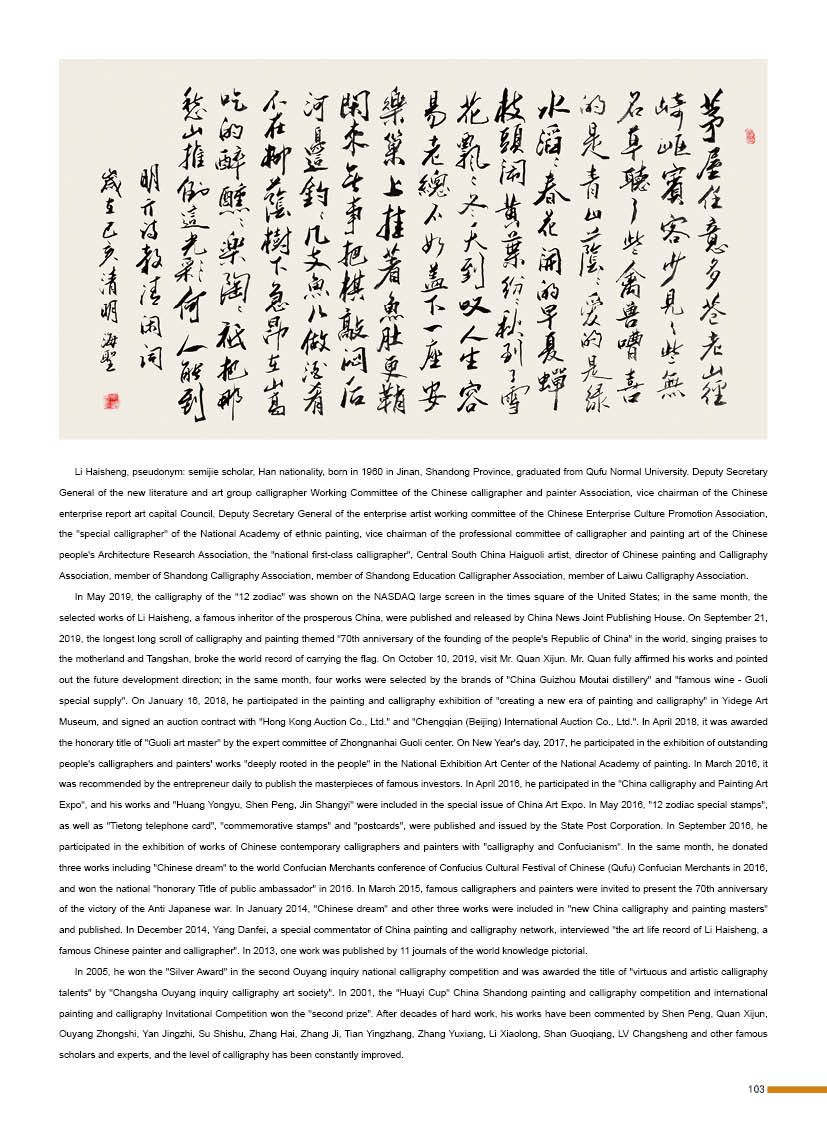 茅屋任意多苍老山徑
崎岖賓客少見々些無
名草聽了些禽兽嘈喜
的是青山蔭々愛的是绿
水滔々春花開的早夏蟬
枝頭闹黄葉纷々秋到了雪
花飄々冬天到叹人生容
易老總不如盖下一座安
樂巢上挂著魚肚更鞘
閑来無事把棋敲闷后
河邊釣々几支魚儿做酒肴
不在柳蔭樹下急昂在嵩
吃的醉醺々樂陶々袛把那
愁山推倒這光彩何人能到
明 诗教清闲词
歲在己亥清明 海聖
Li Haisheng, pseudonym: semijie scholar, Han nationality, born in 1960 in Jinan, Shandong Province, graduated from Qufu Normal University. Deputy Secretary
General of the new literature and art group calligrapher Working Committee of the Chinese calligrapher and painter Association, vice chairman of the Chinese
enterprise report art capital Council, Deputy Secretary General of the enterprise artist working committee of the Chinese Enterprise Culture Promotion Association,
the "special calligrapher" of the National Academy of ethnic painting, vice chairman of the professional committee of calligrapher and painting art of the Chinese
people's Architecture Research Association, the "national first-class calligrapher", Central South China Haiguoli artist, director of Chinese painting and Calligraphy
Association, member of Shandong Calligraphy Association, member of Shandong Education Calligrapher Association, member of Laiwu Calligraphy Association.
In May 2019, the calligraphy of the "12 zodiac" was shown on the NASDAQ large screen in the times square of the United States; in the same month, the
selected works of Li Haisheng, a famous inheritor of the prosperous China, were published and released by China News Joint Publishing House. On September 21,
2019, the longest long scroll of calligraphy and painting themed "70th anniversary of the founding of the people's Republic of China" in the world, singing praises to
the motherland and Tangshan, broke the world record of carrying the flag. On October 10, 2019, visit Mr. Quan Xijun. Mr. Quan fully affirmed his works and pointed
out the future development direction; in the same month, four works were selected by the brands of "China Guizhou Moutai distillery" and "famous wine - Guoli
special supply". On January 16, 2018, he participated in the painting and calligraphy exhibition of "creating a new era of painting and calligraphy" in Yidege Art
Museum, and signed an auction contract with "Hong Kong Auction Co., Ltd." and "Chengqian (Beijing) International Auction Co., Ltd.". In April 2018, it was awarded
the honorary title of "Guoli art master" by the expert committee of Zhongnanhai Guoli center. On New Year's day, 2017, he participated in the exhibition of outstanding
people's calligraphers and painters' works "deeply rooted in the people" in the National Exhibition Art Center of the National Academy of painting. In March 2016, it
was recommended by the entrepreneur daily to publish the masterpieces of famous investors. In April 2016, he participated in the "China calligraphy and Painting Art
Expo", and his works and "Huang Yongyu, Shen Peng, Jin Shangyi" were included in the special issue of China Art Expo. In May 2016, "12 zodiac special stamps",
as well as "Tietong telephone card", "commemorative stamps" and "postcards", were published and issued by the State Post Corporation. In September 2016, he
participated in the exhibition of works of Chinese contemporary calligraphers and painters with "calligraphy and Confucianism". In the same month, he donated
three works including "Chinese dream" to the world Confucian Merchants conference of Confucius Cultural Festival of Chinese (Qufu) Confucian Merchants in 2016,
and won the national "honorary Title of public ambassador" in 2016. In March 2015, famous calligraphers and painters were invited to present the 70th anniversary
of the victory of the Anti Japanese war. In January 2014, "Chinese dream" and other three works were included in "new China calligraphy and painting masters"
and published. In December 2014, Yang Danfei, a special commentator of China painting and calligraphy network, interviewed "the art life record of Li Haisheng, a
famous Chinese painter and calligrapher". In 2013, one work was published by 11 journals of the world knowledge pictorial.
In 2005, he won the "Silver Award" in the second Ouyang inquiry national calligraphy competition and was awarded the title of "virtuous and artistic calligraphy
talents" by "Changsha Ouyang inquiry calligraphy art society". In 2001, the "Huayi Cup" China Shandong painting and calligraphy competition and international
painting and calligraphy Invitational Competition won the "second prize". After decades of hard work, his works have been commented by Shen Peng, Quan Xijun,
Ouyang Zhongshi, Yan Jingzhi, Su Shishu, Zhang Hai, Zhang Ji, Tian Yingzhang, Zhang Yuxiang, Li Xiaolong, Shan Guoqiang, LV Changsheng and other famous
scholars and experts, and the level of calligraphy has been constantly improved.
103